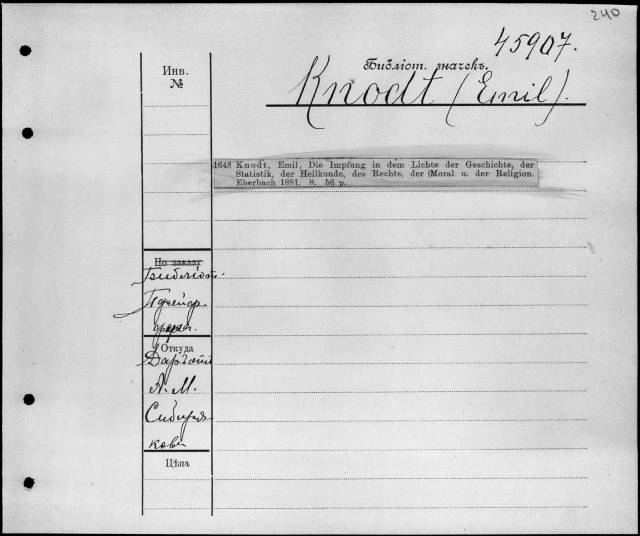 240
45907.
Библіот. значекъ.
Инв.
№
Knodt (Emil).
1648 Knodt, Emil, Die Impfung in dem Lichte der Geschichte, der
Statistik, der Heilkunde, des Rechts, der Moral u. der Religion.
Eberbach 1881. 8. 56 p.
По заказу
Библіот.
Пфейф
фера.
Откуда
Даръ отъ
А. М.
Сибиря
кова
Цѣна